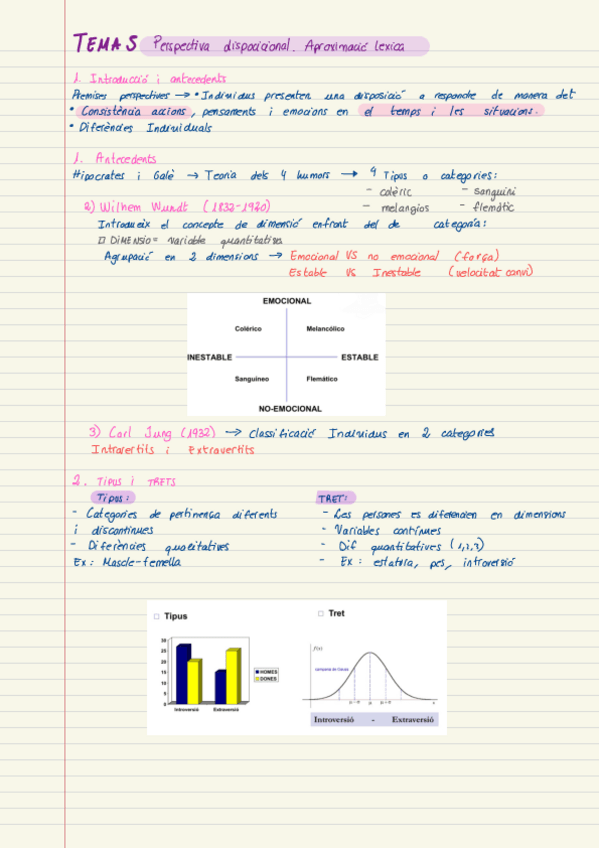 TEMA 5 Perspectiva disposicional. Aproximació lexica
1. Introducció i antecedents
Premises perspectives → • Individus presenten una disposició a respondre de manera det
• Consistència accions, pensaments i emocions en el temps i les situacions.
• Diferències Individuals
1. Antecedents
Hipocrates i Galè → Teoria dels 4 humors → 4 Tipos o categories:
- colèric - sanguini
- melangios - flemàtic
2) Wilhem Wundt (1832-1920)
Introdueix el concepte de dimensió enfront del de categoria:
□ DIMENSIO = variable quantitativa
Agrupació en 2 dimensions → Emocional VS no emocional (força)
Estable VS Inestable (velocitat canvi)
EMOCIONAL
Colérico Melancólico
INESTABLE ESTABLE
Sanguineo Flemático
NO-EMOCIONAL
3) Carl Jung (1932) → Classificació Individus en 2 categories
Introvertits i Extravertits
2. TIPUS i TRETS
Tipus: TRET:
- Categories de pertinença diferents - Les persones es diferencien en dimensions
i discontinues - Variables contínues
- Diferències qualitatives - Dif quantitatives (1,2,3)
Ex: Mascle-femella - Ex: estatura, pes, introversió
Tipus Tret
30
25
20
15
10
5
0
Introversió Extraversió
HOMES
DONES
f(x)
campana de Gauss
μ - σ μ μ + σ x
Introversió - Extraversió